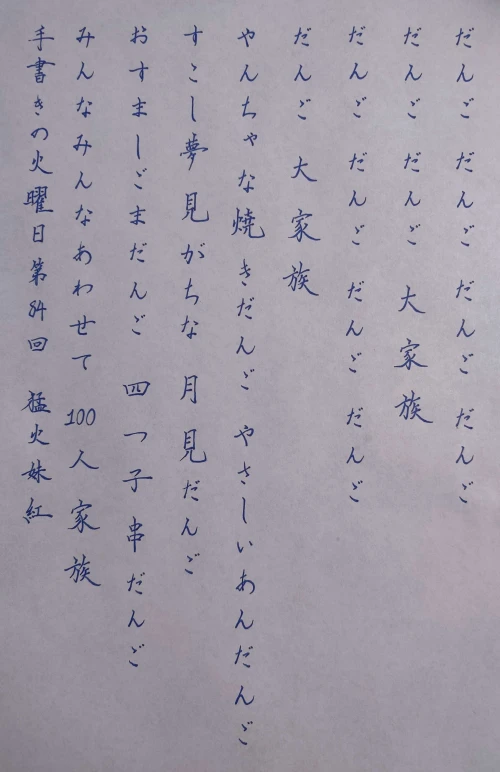 だんご だんご だんご だんご
だんご だんご 大家族
だんご だんご だんご だんご
だんご 大家族
やんちゃな焼きだんご やさしいあんだんご
すこし夢見がちな 月見だんご
おすましごまだんご 四つ子串だんご
みんなみんなあわせて 100人家族
手書きの火曜日第84回 猛火妹紅